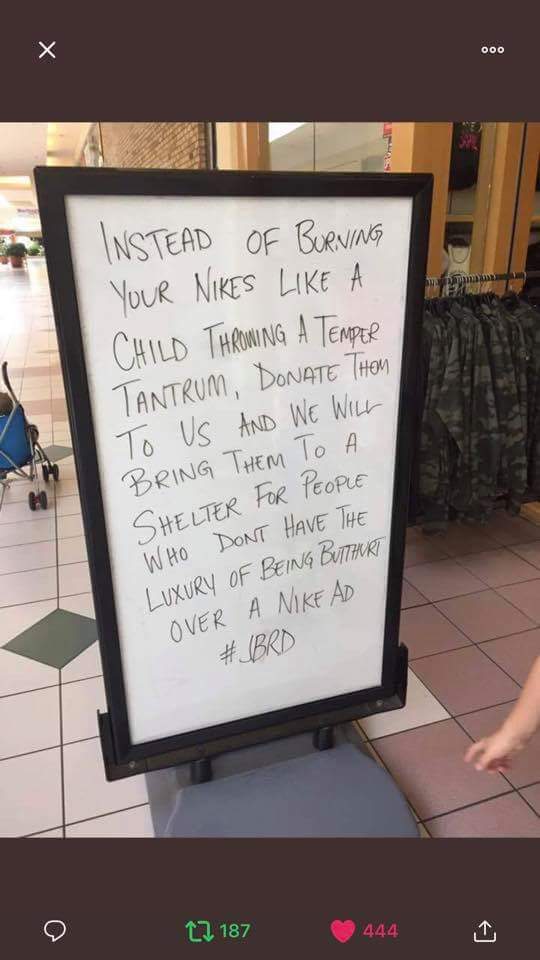 INSTEAD OF BURNING
YOUR NIKES LIKE A
CHILD THROWING A TEMPER
TANTRUM, DONATE THEM
TO US AND WE WILL
BRING THEM TO A
SHELTER FOR PEOPLE
WHO DONT HAVE THE
LUXURY OF BEING BUTTHURT
OVER A NIKE AD
#JBRD
187 444